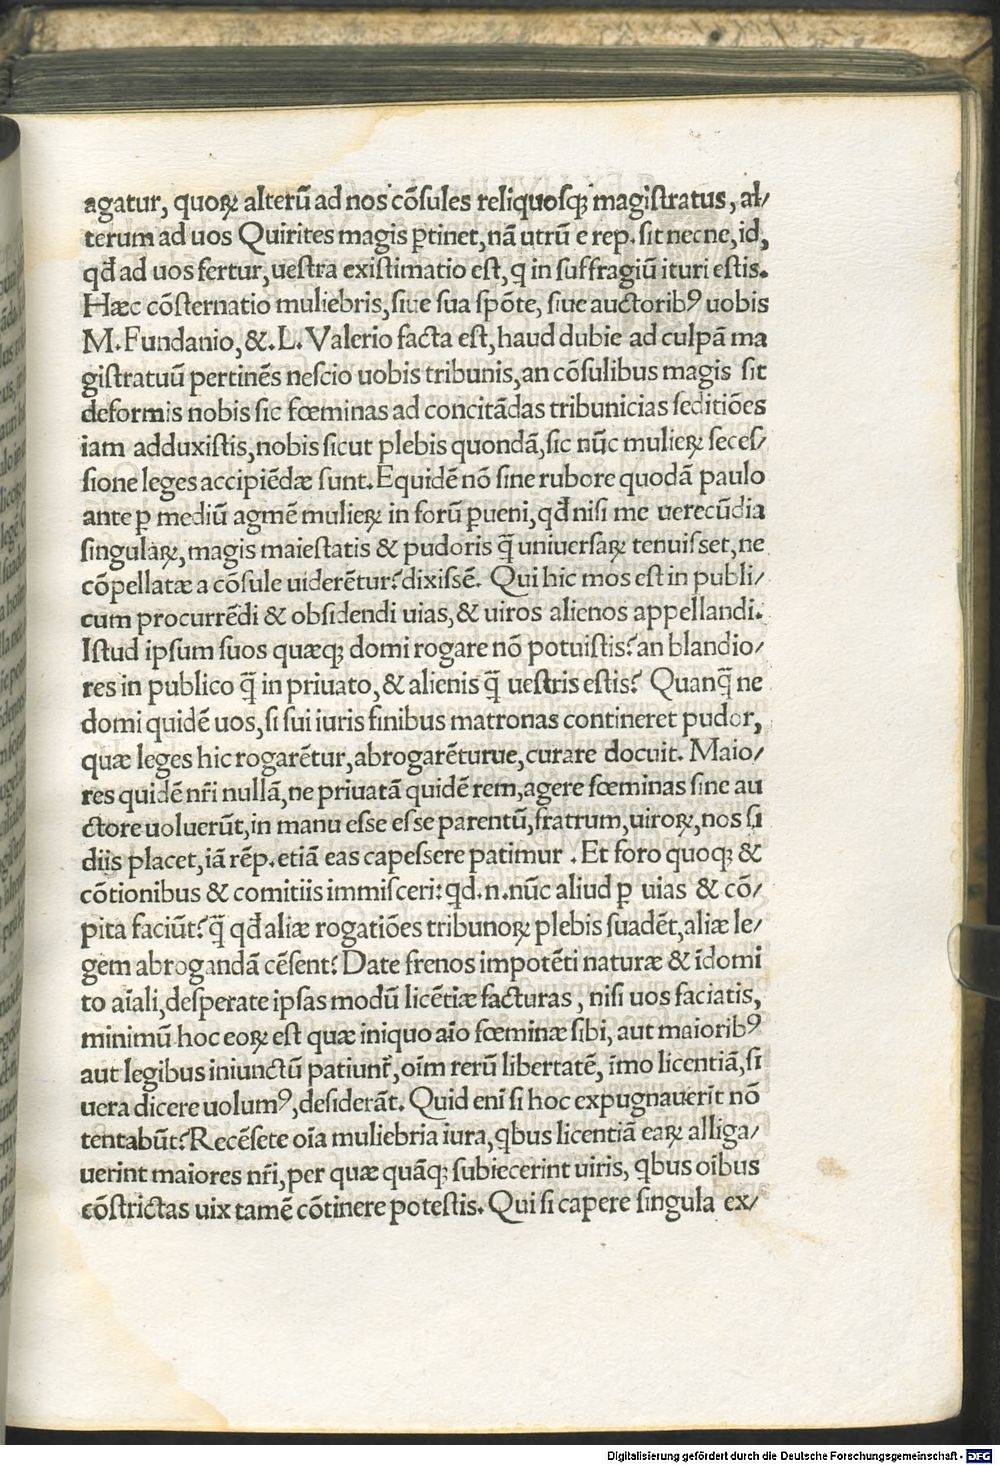 agatur, quoꝝ alterū ad nos cōsules reliquosqꝫ magistratus, al/
terum ad uos Quirites magis ꝑtinet, nā utrū e rep. sit necne, id,
qđ ad uos fertur, uestra existimatio est, q in suffragiū ituri estis.
Hæc cōsternatio muliebris, siue sua spōte, siue auctoribꝰ uobis
M. Fundanio, &. L. Valerio facta est, haud dubie ad culpā ma
gistratuū pertinēs nescio uobis tribunis, an cōsulibus magis sit
deformis nobis sic fœminas ad concitādas tribunicias seditiōes
iam adduxistis, nobis sicut plebis quondā, sic nūc mulieꝝ seces/
sione leges accipiēdæ sunt. Equidē nō sine rubore quodā paulo
ante ꝑ mediū agmē mulieꝝ in forū ꝑueni, qđ nisi me uerecūdia
singulaꝝ, magis maiestatis & pudoris q̄ uniuersaꝝ tenuisset, ne
cōpellatæ a cōsule uiderētur? dixissē. Qui hic mos est in publi/
cum procurrēdi & obsidendi uias, & uiros alienos appellandi.
Istud ipsum suos quæqꝫ domi rogare nō potuistis? an blandio/
res in publico q̄ in priuato, & alienis q̄ uestris estis? Quanq̄ ne
domi quidē uos, si sui iuris finibus matronas contineret pudor,
quæ leges hic rogarētur, abrogarēturue, curare docuit. Maio/
res quidē nr̄i nullā, ne priuatā quidē rem, agere fœminas sine au
ctore uoluerūt, in manu esse esse parentū, fratrum, uiroꝝ, nos si
diis placet, iā rēp. etiā eas capessere patimur . Et foro quoqꝫ &
cōtionibus & comitiis immisceri: qd. n. nūc aliud ꝑ uias & cō/
pita faciūt? q̄ qđ aliæ rogatiōes tribunoꝝ plebis suadēt, aliæ le/
gem abrogandā cēsent? Date frenos impotēti naturæ & idomi
to aīali, desperate ipsas modū licētiæ facturas, nisi uos faciatis,
minimū hoc eoꝝ est quæ iniquo aīo fœminæ sibi, aut maioribꝰ
aut legibus iniunctū patiunt̄, oīm rerū libertatē, īmo licentiā, si
uera dicere uolumꝰ, desiderāt. Quid eni si hoc expugnauerīt nō
tentabūt? Recēsete oīa muliebria iura, qbus licentiā eaꝝ alliga/
uerint maiores nr̄i, per quæ quāqꝫ subiecerint uiris, qbus oībus
cōstrictas uix tamē cōtinere potestis. Qui si capere singula ex/
Digitalisierung gefördert durch die Deutsche Forschungsgemeinschaft - DFG